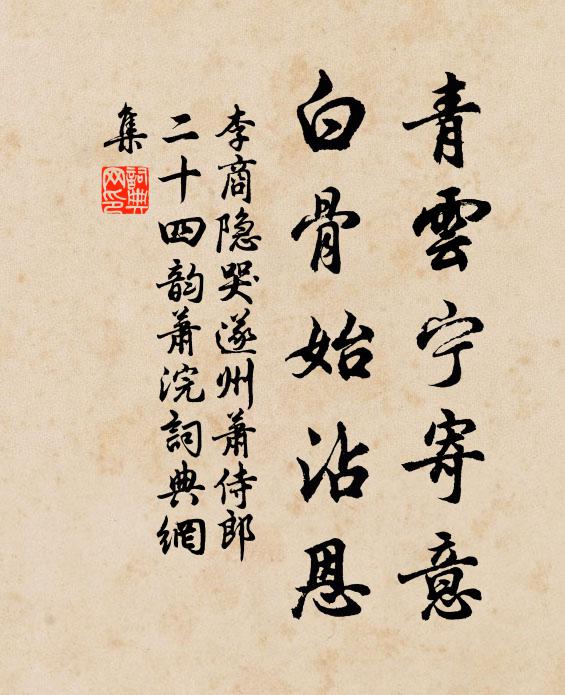 青雲宁寄意
白骨始沾恩
李商隐哭遂州萧侍郎
二十四韵萧浣詞典網
集
詞典網印